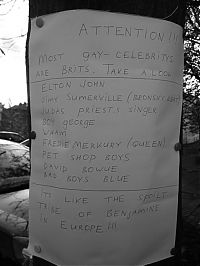 ATTENTION!!!
MOST GAY-CELEBRITYS
ARE BRITS. TAKE A LOOK
ELTON JOHN
JIMY SUMERVILLE (BRONSKY BEAT)
JUDAS PRIEST'S SINGER
BOY GEORGE
WHAM
FREDIE MERKURY (QUEEN)
PET SHOP BOYS
DAVID BOWUE
BAD BOYS BLUE
IT'S LIKE THE SPOILT
TRIBE OF BENJAMINE
IN EUROPE!!!